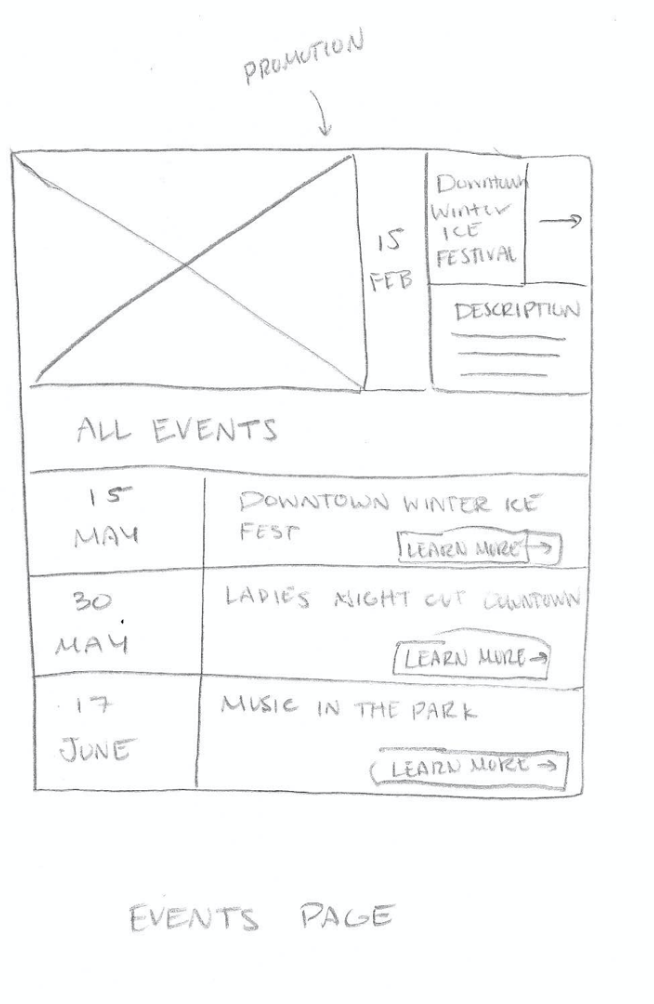 PROMOTION
15
FEB
Downtown
Winter
ICE
FESTIVAL
→
DESCRIPTION
ALL EVENTS
15
MAY
DOWNTOWN WINTER ICE
FEST
LEARN MORE →
30
MAY
LADIES NIGHT OUT DOWNTOWN
LEARN MORE →
17
JUNE
MUSIC IN THE PARK
LEARN MORE →
EVENTS PAGE